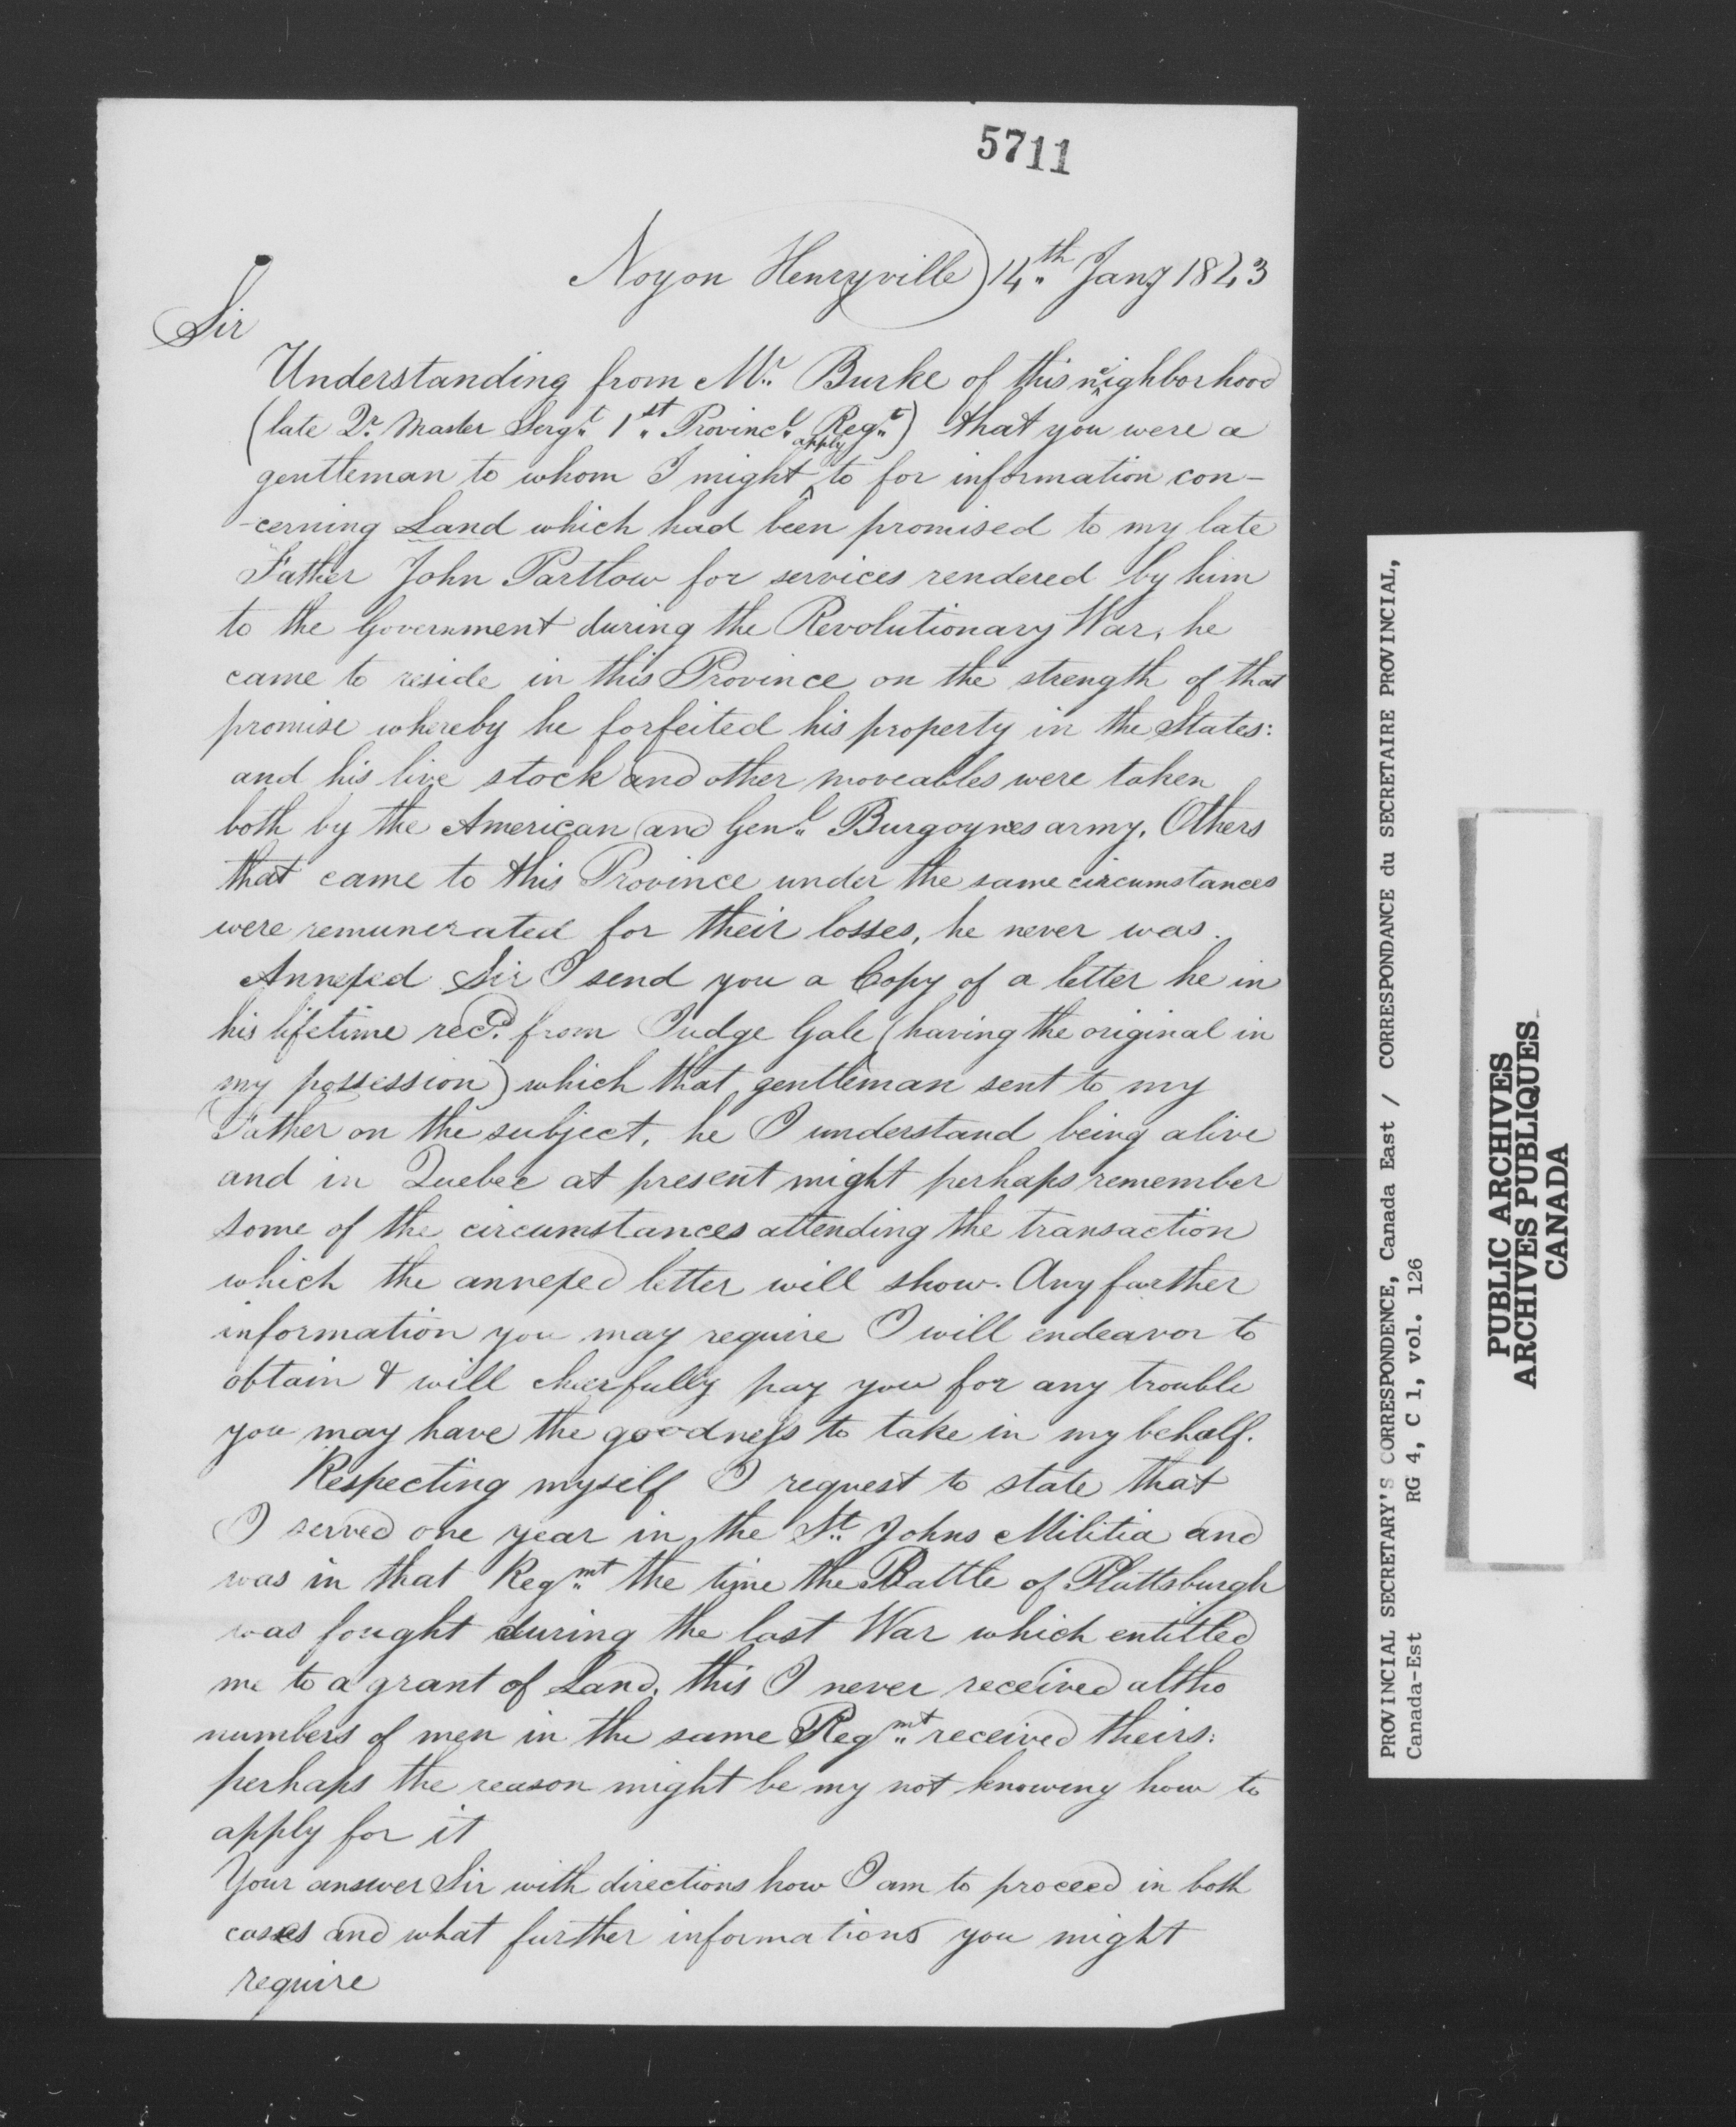 5711
Noyon Henryville 14th Jany 1843
Sir
Understanding from Mr. Burke of this neighborhood
(late Qr. Master Sergt. 1st. Provincl. Regt.) that you were a
gentleman to whom I might apply to for information con-
-cerning Land which had been promised to my late
Father John Parttow for services rendered by him
to the Government during the Revolutionary War, he
came to reside in this Province on the strength of that
promise whereby he forfeited his property in the States:
and his live stock and other moveables were taken
both by the American and Genl. Burgoynes army. Others
that came to this Province under the same circumstances
were remunerated for their losses, he never was.
Annexed Sir I send you a Copy of a letter he in
his lifetime recd. from Judge Gale (having the original in
my possession) which that gentleman sent to my
Father on the subject, he I understand being alive
and in Quebec at present might perhaps remember
some of the circumstances attending the transaction
which the annexed letter will show. Any farther
information you may require I will endeavor to
obtain & will cheerfully pay you for any trouble
you may have the goodness to take in my behalf.
Respecting myself I request to state that
I served one year in the St. Johns Militia and
was in that Regmt. the time the Battle of Plattsburgh
was fought during the last War which entitled
me to a grant of Land, this I never received altho
numbers of men in the same Regmt. received theirs:
perhaps the reason might be my not knowing how to
apply for it
Your answer Sir with directions how I am to proceed in both
cases and what further informations you might
require
PROVINCIAL SECRETARY'S CORRESPONDENCE, Canada East / CORRESPONDANCE du SECRETAIRE PROVINCIAL,
Canada-Est RG 4, C 1, vol. 126
PUBLIC ARCHIVES
ARCHIVES PUBLIQUES
CANADA